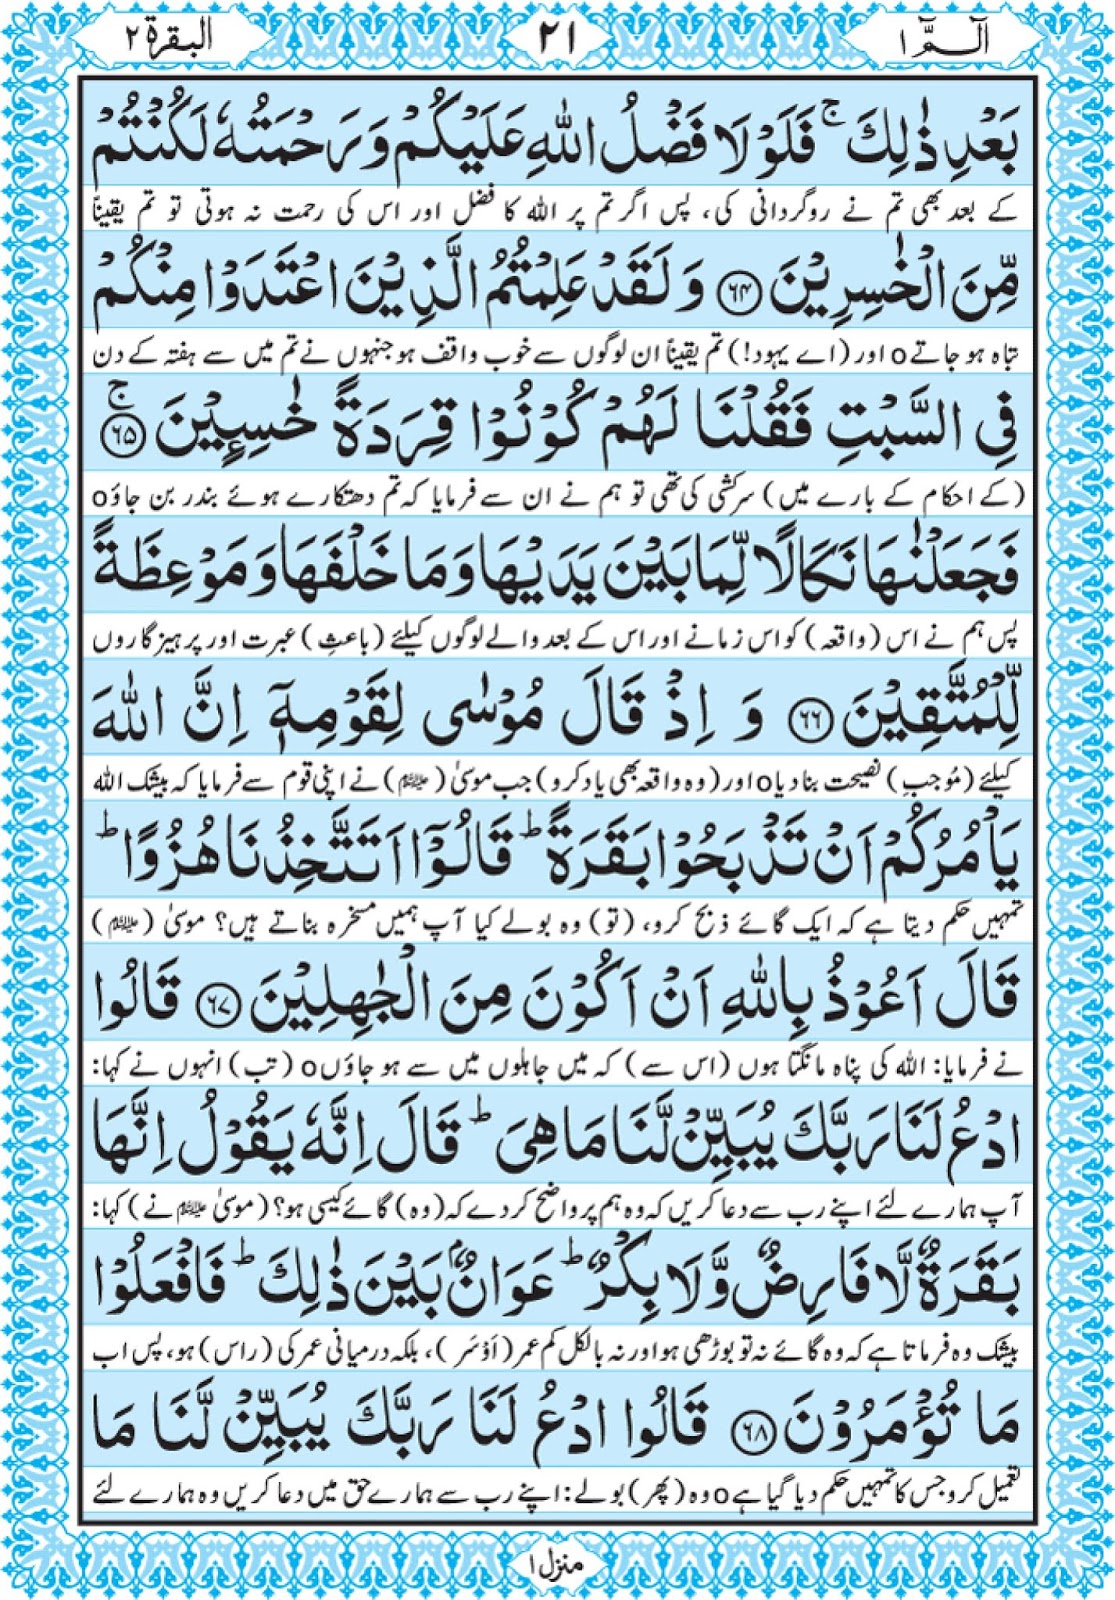 الٓـمّٓ ١
٢١
البقرة ٢
بَعْدِ ذٰلِكَ ۚ فَلَوْ لَا فَضْلُ اللّٰهِ عَلَيْكُمْ وَ رَحْمَتُهٗ لَكُنْتُمْ
کے بعد بھی تم نے روگردانی کی، پس اگر تم پر اللہ کا فضل اور اس کی رحمت نہ ہوتی تو تم یقیناً
مِّنَ الْخٰسِرِيْنَ ﴿٦٤﴾ وَ لَقَدْ عَلِمْتُمُ الَّذِيْنَ اعْتَدَوْا مِنْكُمْ
تباہ ہو جاتےo اور (اے یہود!) تم یقیناً ان لوگوں سے خوب واقف ہو جنہوں نے تم میں سے ہفتہ کے دن
فِي السَّبْتِ فَقُلْنَا لَهُمْ كُوْنُوْا قِرَدَةً خٰسِـِٕيْنَ ﴿٦٥﴾ۚ
(کے احکام کے بارے میں) سرکشی کی تھی تو ہم نے ان سے فرمایا کہ تم دھتکارے ہوئے بندر بن جاؤo
فَجَعَلْنٰهَا نَكَالًا لِّمَا بَيْنَ يَدَيْهَا وَ مَا خَلْفَهَا وَ مَوْعِظَةً
پس ہم نے اس (واقعہ) کو اس زمانے اور اس کے بعد والے لوگوں کیلئے (باعثِ) عبرت اور پرہیزگاروں
لِّلْمُتَّقِيْنَ ﴿٦٦﴾ وَ اِذْ قَالَ مُوْسٰى لِقَوْمِهٖٓ اِنَّ اللّٰهَ
کیلئے (مُوجبِ) نصیحت بنا دیاo اور (وہ واقعہ بھی یاد کرو) جب موسیٰ (علیہ السلام) نے اپنی قوم سے فرمایا کہ بیشک اللہ
يَاْمُرُكُمْ اَنْ تَذْبَحُوْا بَقَرَةً ؕ قَالُوْٓا اَتَتَّخِذُنَا هُزُوًا ؕ
تمہیں حکم دیتا ہے کہ ایک گائے ذبح کرو، (تو) وہ بولے کیا آپ ہمیں مسخرہ بناتے ہیں؟ موسیٰ (علیہ السلام)
قَالَ اَعُوْذُ بِاللّٰهِ اَنْ اَكُوْنَ مِنَ الْجٰهِلِيْنَ ﴿٦٧﴾ قَالُوا
نے فرمایا: اللہ کی پناہ مانگتا ہوں (اس سے) کہ میں جاہلوں میں سے ہو جاؤںo (تب) انہوں نے کہا:
ادْعُ لَنَا رَبَّكَ يُبَيِّنْ لَّنَا مَا هِيَ ؕ قَالَ اِنَّهٗ يَقُوْلُ اِنَّهَا
آپ ہمارے لئے اپنے رب سے دعا کریں کہ وہ ہم پر واضح کر دے کہ (وہ) گائے کیسی ہو؟ (موسیٰ علیہ السلام نے) کہا:
بَقَرَةٌ لَّا فَارِضٌ وَّ لَا بِكْرٌ ؕ عَوَانٌۢ بَيْنَ ذٰلِكَ ؕ فَافْعَلُوْا
بیشک وہ فرماتا ہے کہ وہ گائے نہ تو بوڑھی ہو اور نہ بالکل کم عمر (اَوسَر)، بلکہ درمیانی عمر کی (راس) ہو، پس اب
مَا تُؤْمَرُوْنَ ﴿٦٨﴾ قَالُوا ادْعُ لَنَا رَبَّكَ يُبَيِّنْ لَّنَا مَا
تعمیل کرو جس کا تمہیں حکم دیا گیا ہےo وہ (پھر) بولے: اپنے رب سے ہمارے حق میں دعا کریں وہ ہمارے لئے
منزل ١